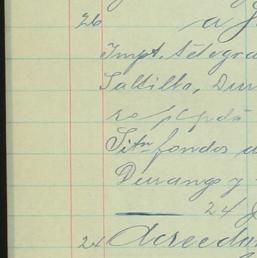 26 a
Impt. telegra
Saltillo, Dur
Sitn fondos a
Durango y
24
24 Acreedor